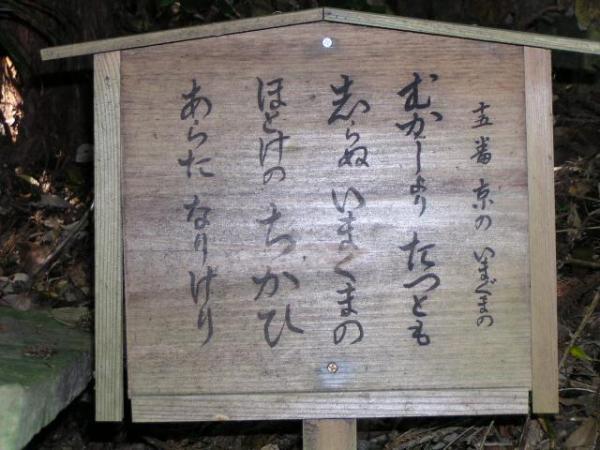 十五番 京の いまぐまの
むかしより たつとも
志らぬ いまくまの
ほとけの ちかひ
あらた なりけり